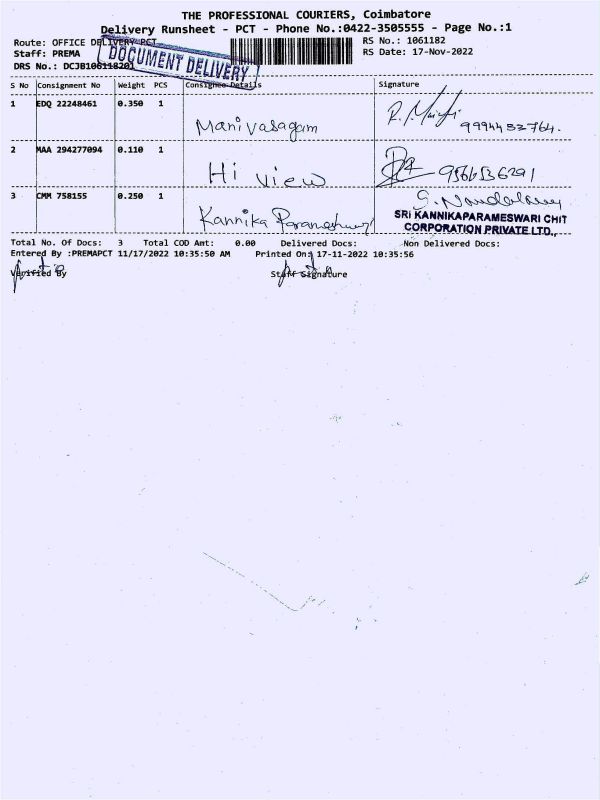 THE PROFESSIONAL COURIERS, Coimbatore
Delivery Runsheet - PCT - Phone No.:0422-3505555 - Page No.:1
Route: OFFICE DELIVERY PCT
RS No.: 1061182
Staff: PREMA
RS Date: 17-Nov-2022
DRS No.: DCJB106118201
DOCUMENT DELIVERY
S No Consignment No Weight PCS Consignee Details Signature
1 EDQ 22248461 0.350 1
Manivasagam
9994432764.
2 MAA 294277094 0.110 1
Hi view
3 CMM 758155 0.250 1
Kannika Parameshwari
SRI KANNIKAPARAMESWARI CHIT
CORPORATION PRIVATE LTD.,
Total No. Of Docs: 3 Total COD Amt: 0.00 Delivered Docs: Non Delivered Docs:
Entered By :PREMAPCT 11/17/2022 10:35:50 AM Printed On: 17-11-2022 10:35:56
Verified By Staff Signature